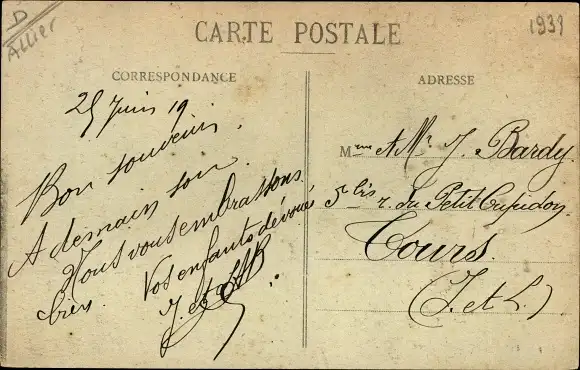 D
Allier
1939
CARTE POSTALE
CORRESPONDANCE
ADRESSE
25 Juin 19
Bon souvenir.
A demain soir
Nous vous embrassons
bien. Vos enfants dévoués
J. et
Mme et Mr. J. Bardy.
5 bis r. du Petit Cupidon,
Tours.
(I. et L)